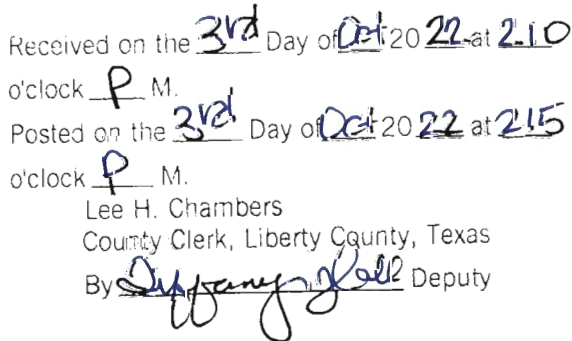 Received on the 3rd Day of Oct 2022 at 2.10
o'clock P M.
Posted on the 3rd Day of Oct 2022 at 215
o'clock P M.
Lee H. Chambers
County Clerk, Liberty County, Texas
By Deputy